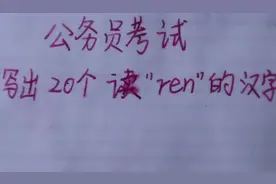 公务员考试
写出20个读"ren"的汉字